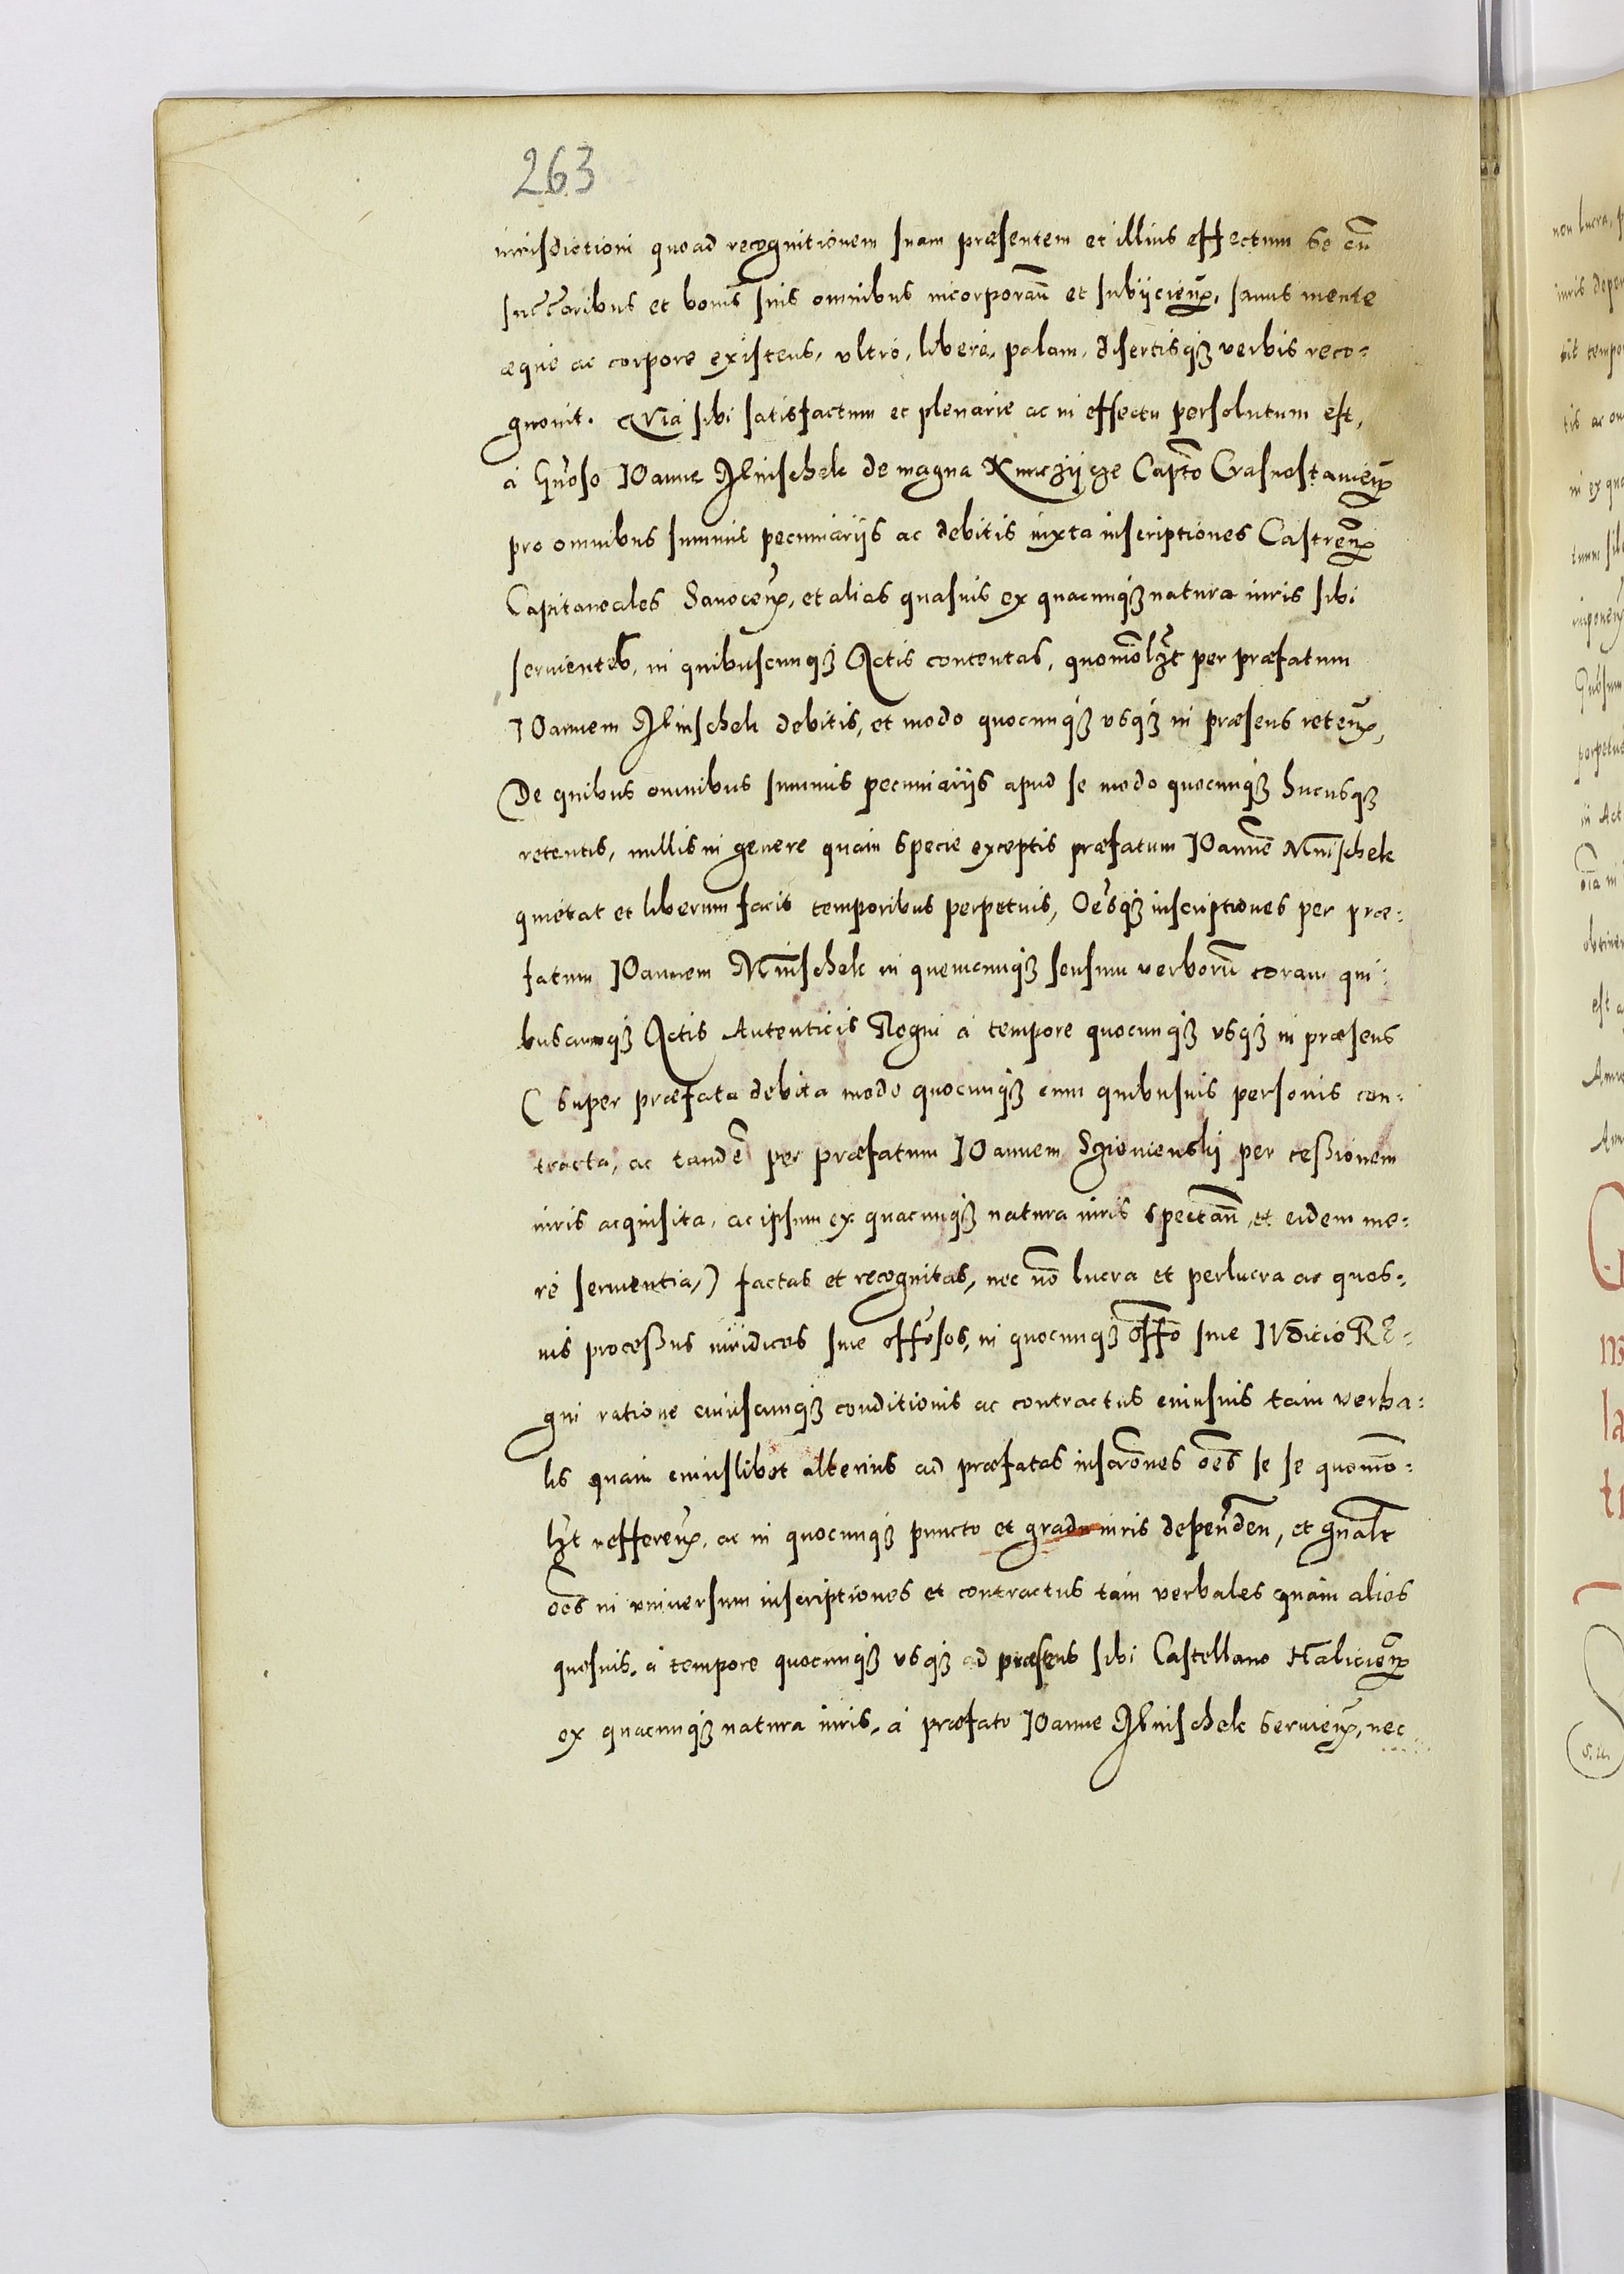 263
iurisdictioni quoad recognitionem suam præsentem et illius effectum se cũ
succ̃oribus et bonis suis omnibus incorporañ et subijcieñ, sanus mente
æque ac corpore existens, vltrò, liberè, palam, disertisq₃ verbis reco=
gnouit. Quia sibi satisfactum et plenarie ac in effectu persolutum est,
à Gñoso IOanne Mnischek de magna Kunczijcze Capt̃o Crasnostauieñ
pro omnibus summis pecuniarijs ac debitis iuxta inscriptiones Castreñ
Capitaneales Sanoceñ, et alias quasuis ex quacunq₃ natura iuris sibi
seruientes, in quibuscunq₃ Actis contentas, quomõlz̃t per præfatum
IOannem Mnischek debitis, et modo quocunq₃ vsq₃ in præsens reteñ,
De quibus omnibus summis pecuniarijs apud se modo quocunq₃ hucusq₃
retentis, nullis in genere quam specie exceptis præfatum IOannẽ Mnischek
quietat et liberum facit temporibus perpetuis, Oẽsq₃ inscriptiones per præ=
fatum IOannem Mnischek in quemcunq₃ sensum verborũ coram qui=
buscunq₃ Actis Autenticis Regni à tempore quocunq₃ vsq₃ in præsens
( super præfata debita modo quocunq₃ cum quibusuis personis con=
tracta, ac tandẽ per præfatum IOannem Szieniensky per cessionem
iuris acquisita, ac ipsum ex quacunq₃ natura iuris spectañ, et eidem me=
rè seruientia,) factas et recognitas, nec nõ lucra et perlucra ac quos=
uis processus iuridicos siue off̃osos, in quocunq₃ off̃o siue IVdicio RE=
gni ratione cuiuscunq₃ conditionis ac contractus cuiusuis tam verba=
lis quam cuiuslibet alterius ad præfatas inscrõnes oẽs se se quomõ=
lz̃t reffereñ, ac in quocunq₃ puncto et gradu iuris dependeñ, et gñalr̃
oẽs in vniuersum inscriptiones et contractus tam verbales quam alios
quosuis, à tempore quocunq₃ vsq₃ ad præsens sibi Castellano Halicieñ
ex quacunq₃ natura iuris, à præfato IOanne Mnischek seruieñ, nec